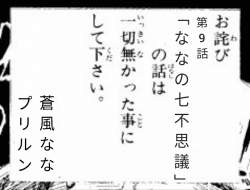 お詫び
第9話
「ななの七不思議」
の話は
一切無かった事に
して下さい。
蒼風なな
プリルン